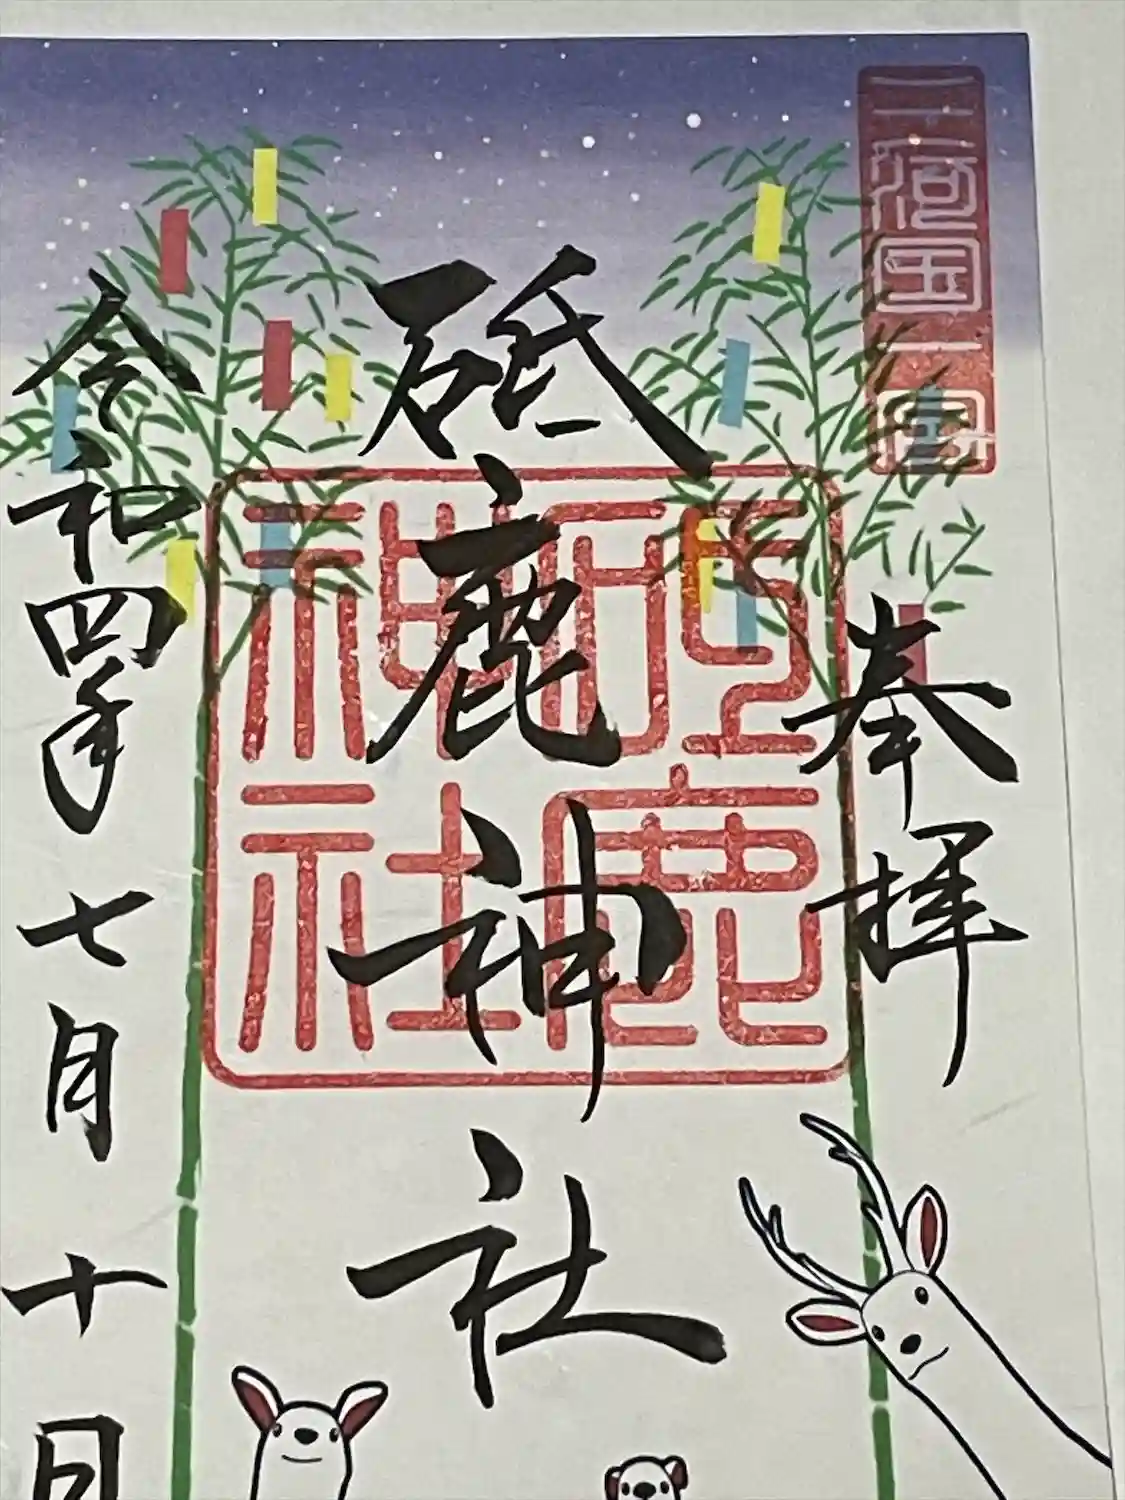 三河国一宮
奉拝
砥鹿神社
砥鹿神社
令和四年七月十日